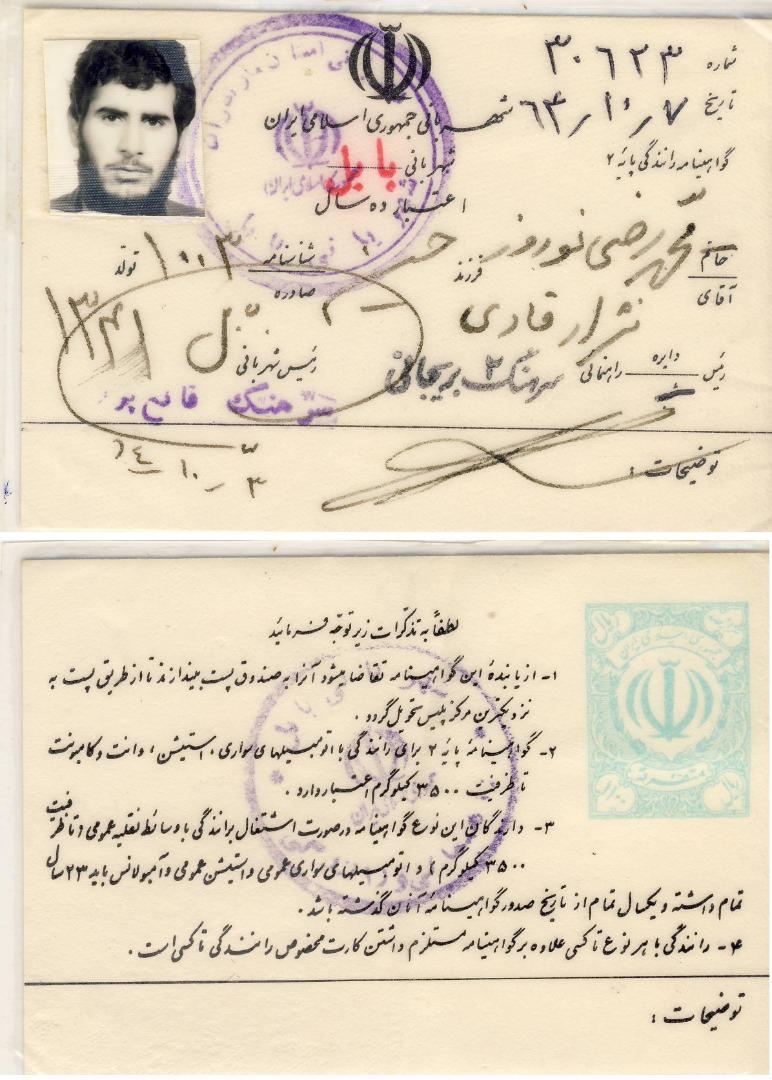 شماره ۳۰۶۲۳
تاریخ ۶۴/۱۰/۷
شهربانی جمهوری اسلامی ایران
گواهینامه رانندگی پایهٔ ۲
شهربانی بابل
اعتبار ده سال
خانم
آقای
محمد رضی نوروز
فرزند
شناسنامه ۱۰۰۳
تولد ۱۳۴۱
صادره بابل
رئیس دایره راهنمائی سرهنگ ۲
رئیس شهربانی
سرهنگ
توضیحات :
لطفاً به تذکرات زیر توجه فرمائید
۱- از یابندهٔ این گواهینامه تقاضا میشود آنرا به صندوق پست بیندازند تا از طریق پست به
نزدیکترین مرکز پلیس تحویل گردد .
۲- گواهینامهٔ پایهٔ ۲ برای رانندگی با اتومبیلهای سواری ، استیشن ، وانت و کامیونت
تا ظرفیت ۳۵۰۰ کیلوگرم اعتبار دارد .
۳- دارندگان این نوع گواهینامه در صورت اشتغال برانندگی با وسائط نقلیه عمومی ( تا ظرفیت
۳۵۰۰ کیلوگرم ) و اتومبیلهای سواری عمومی و استیشن عمومی و آمبولانس باید ۲۳ سال
تمام داشته و یکسال تمام از تاریخ صدور گواهینامهٔ آنان گذشته باشد .
۴- رانندگی با هر نوع تاکسی علاوه بر گواهینامه مستلزم داشتن کارت مخصوص رانندگی تاکسی است .
توضیحات :
جمهوری اسلامی ایران
متفرقه